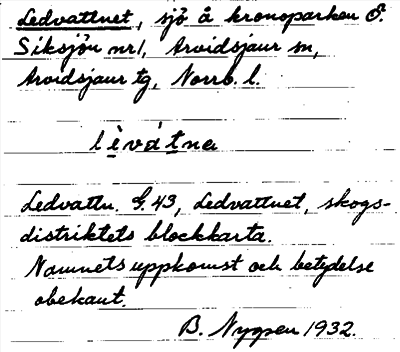 Ledvattnet, sjö å kronoparken Ö.
Siksjön nr 1, Arvidsjaur sn,
Arvidsjaur tg, Norrb. l.
lèvátna
Ledvattn. G. 43, Ledvattnet, skogs-
distriktets blockkarta.
Namnets uppkomst och betydelse
obekant.
B. Nygren 1932.